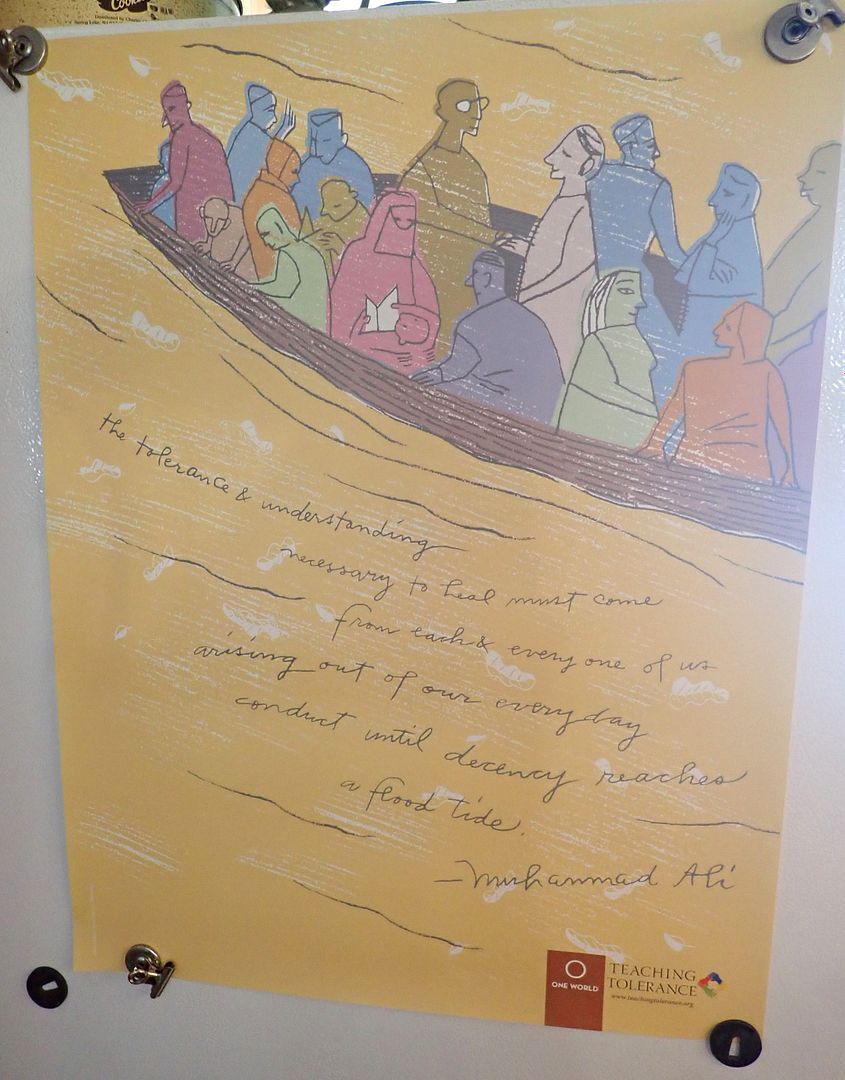 Cookie
Distributed by
the tolerance & understanding
necessary to heal must come
from each & every one of us
arising out of our everyday
conduct until decency reaches
a flood tide.
—Muhammad Ali
ONE WORLD
TEACHING
TOLERANCE
www.teachingtolerance.org